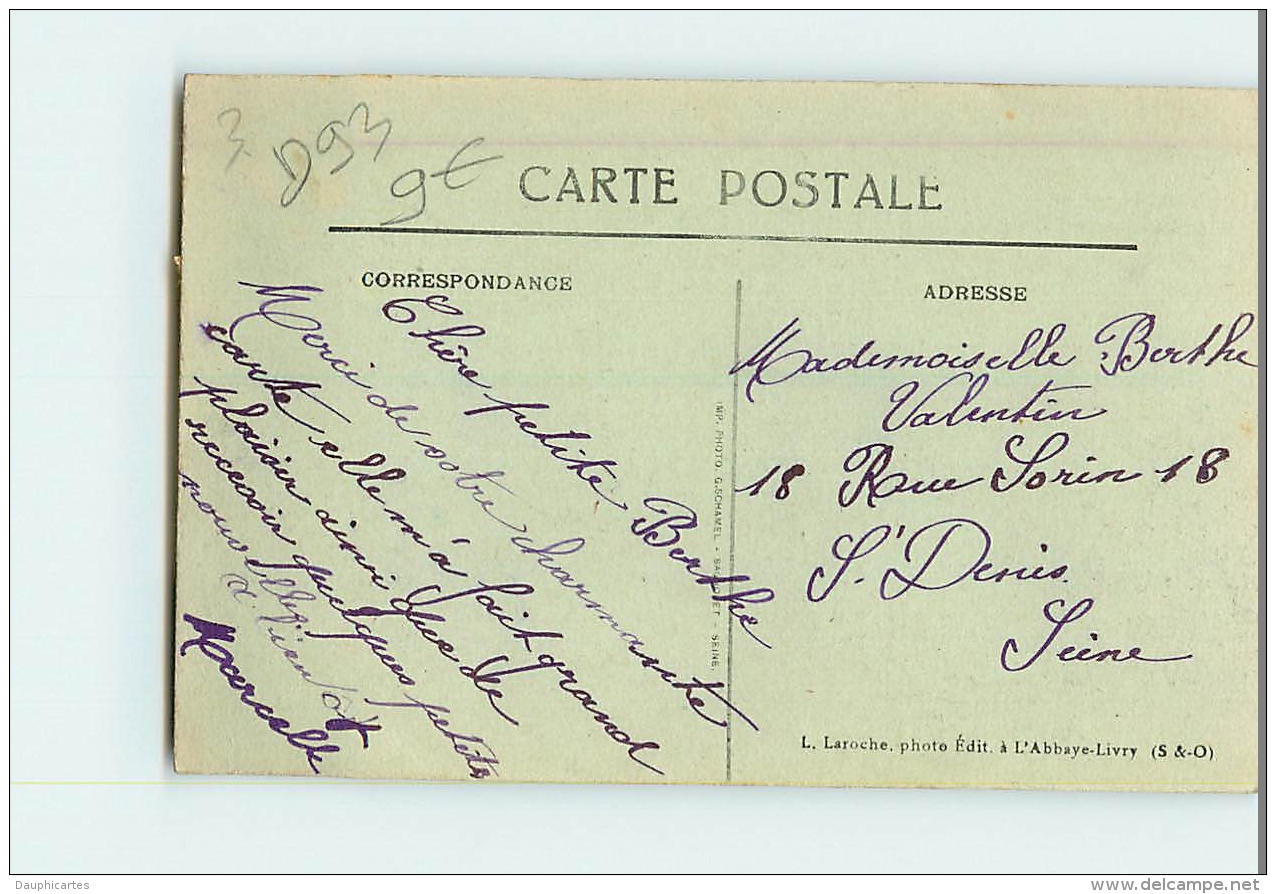 3 D93
9€
CARTE POSTALE
CORRESPONDANCE
Chère petite Berthe
Merci de votre charmante
carte elle m'à fait grand
plaisir ainsi que de
recevoir quelques petites
nouvelles
a bientôt
Marcelle
IMP. PHOTO. G. SCHAMEL - BAGNOLET - SEINE.
ADRESSE
Mademoiselle Berthe
Valentin
18 Rue Sorin 18
St Denis
Seine
L. Laroche, photo Édit. à L'Abbaye-Livry (S &-O)
Dauphicartes
www.delcampe.net